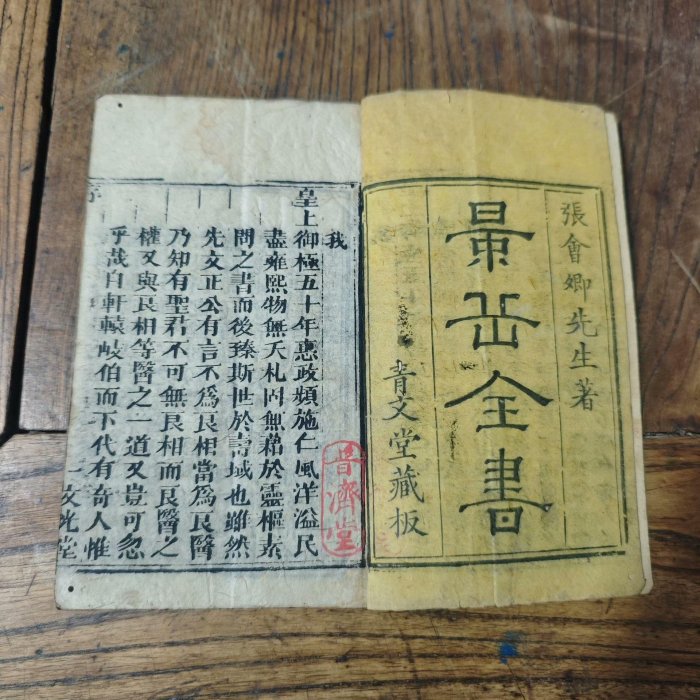 張會卿先生著
景岳全書
青文堂藏板
普濟堂
我
皇上御極五十年惠政頻施仁風洋溢民
盡雍熙物無夭札固無藉於靈樞素
問之書而後臻斯世於壽域也雖然
先文正公有言不為良相當為良醫
乃知有聖君不可無良相而良醫之
權又與良相等醫之一道又豈可忽
乎哉自軒轅岐伯而下代有奇人惟
序
一